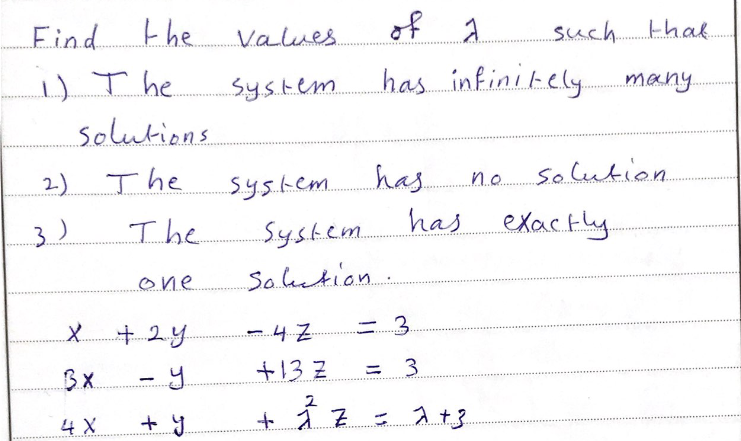 Find the values of λ such that
1) The system has infinitely many
solutions
2) The system has no solution
3) The system has exactly
one solution.
x + 2y - 4z = 3
3x - y + 13z = 3
4x + y + λ² z = λ + 3